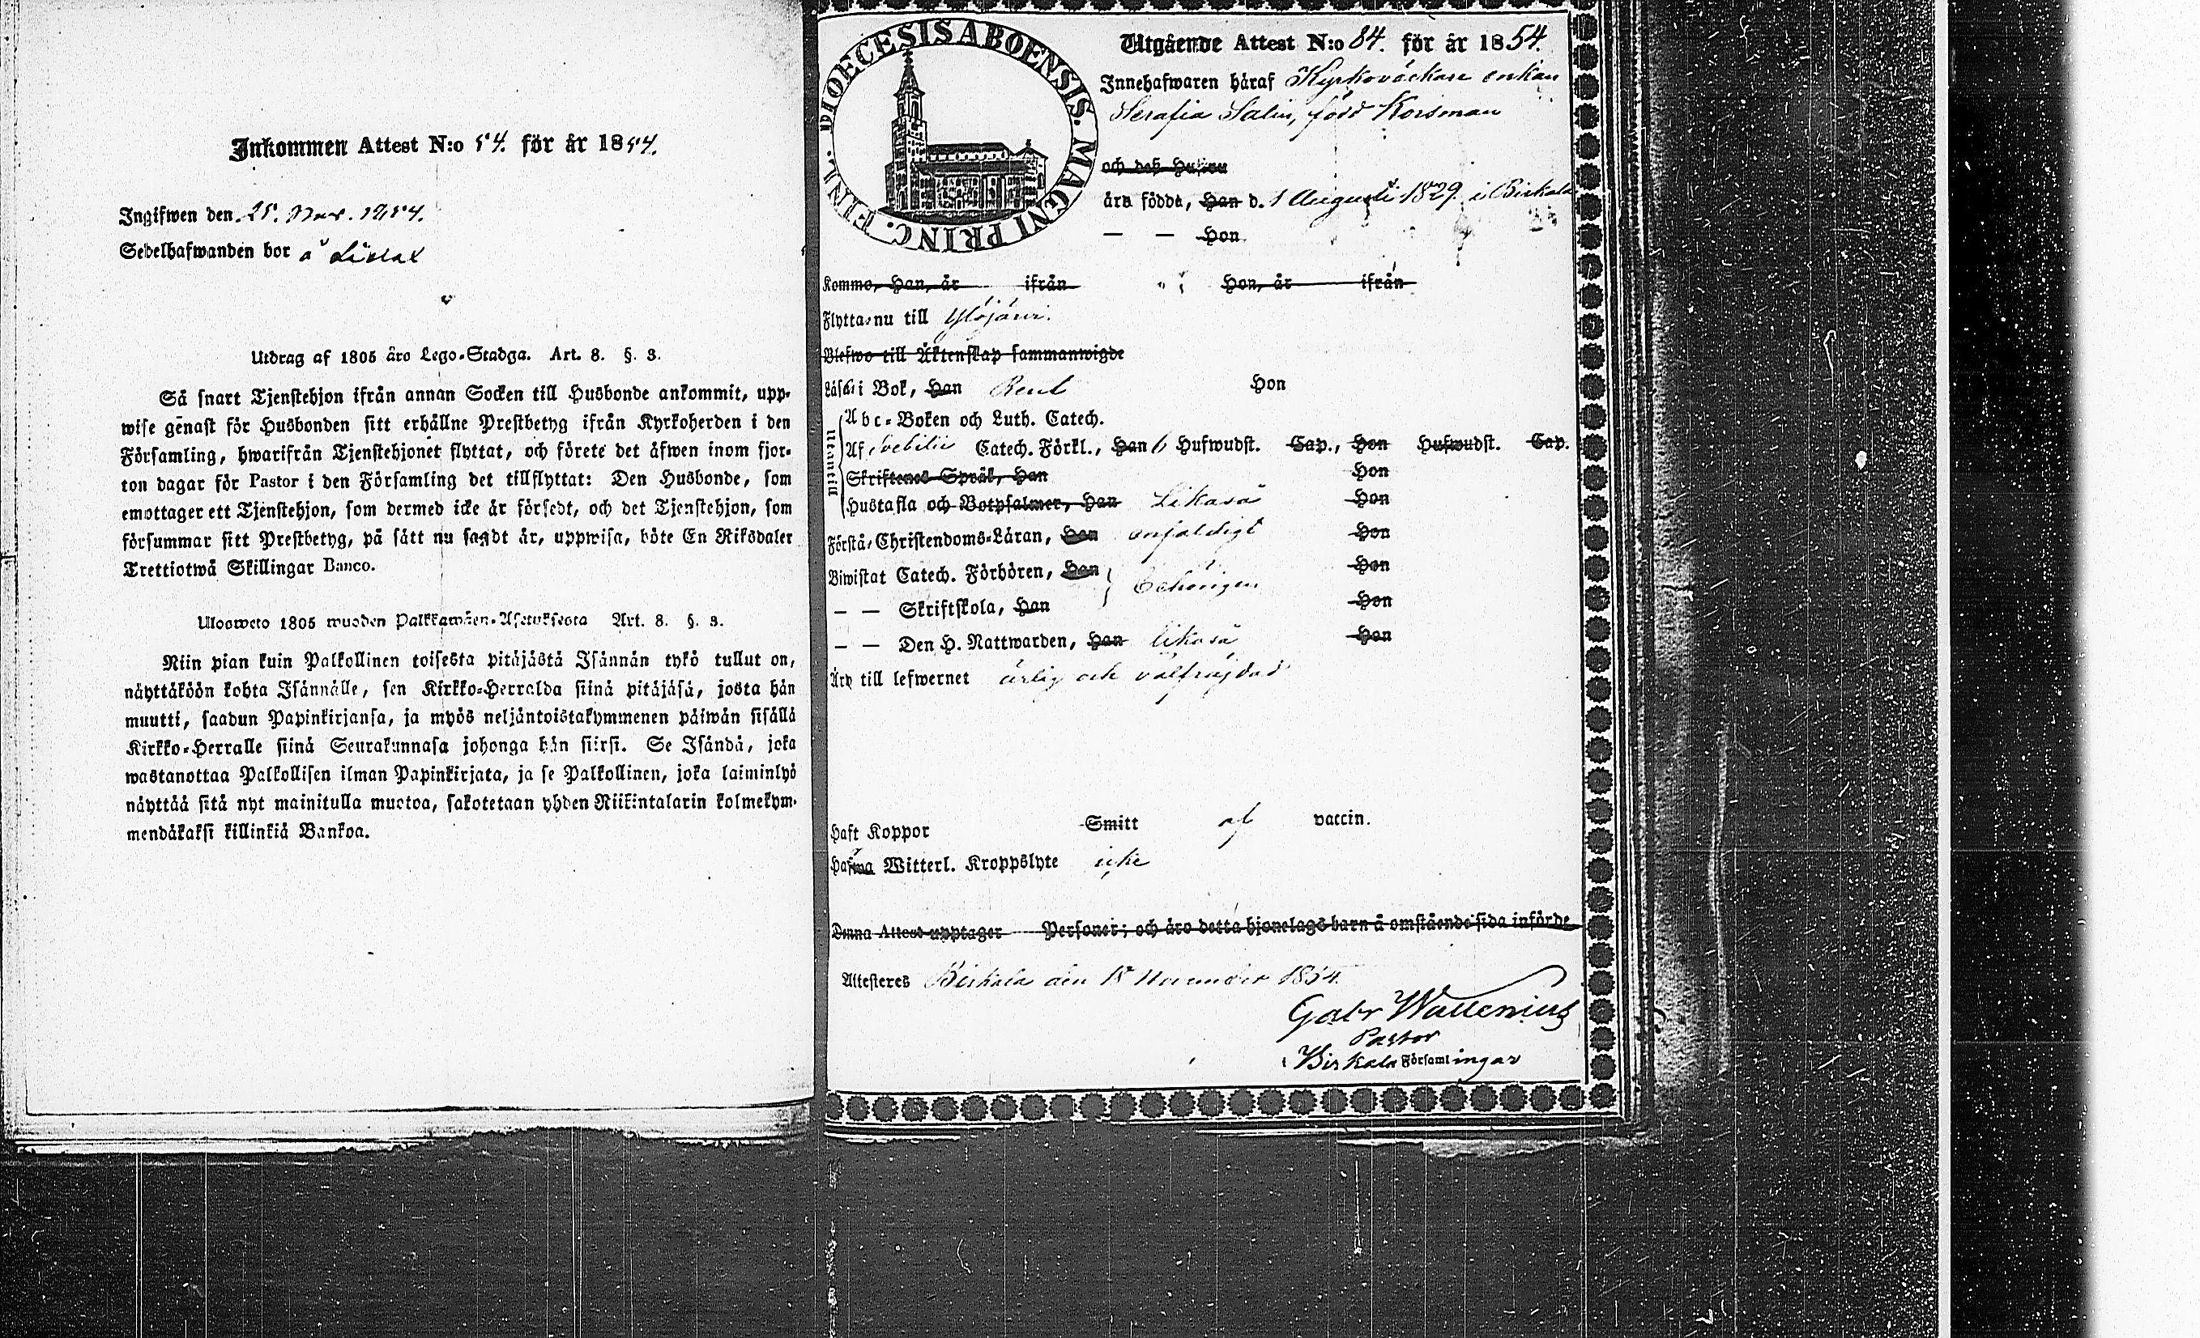 Inkommen Attest N:o 54. för år 1854.
Ingifwen den 25. Nov. 1854.
Sedelhafwanden bor å
Utdrag af 1805 års Lego-Stadga. Art. 8. §. 3.
Så snart Tjenstehjon ifrån annan Socken till Husbonde ankommit, upp-
wise genast för Husbonden sitt erhållne Prestbetyg ifrån Kyrkoherden i den
Församling, hwarifrån Tjenstehjonet flyttat, och förete det äfwen inom fjor-
ton dagar för Pastor i den Församling det tillflyttat: Den Husbonde, som
emottager ett Tjenstehjon, som dermed icke är försedt, och det Tjenstehjon, som
försummar sitt Prestbetyg, på sätt nu sagdt är, uppwisa, böte En Riksdaler
Trettiotwå Skillingar Banco.
Uloswето 1805 wuoden Palkkawäen-Asetuksesta Art. 8. §. 3.
Niin pian kuin Palkollinen toisesta pitäjästä Isännän tykö tullut on,
näyttäköön kohta Isännälle, sen Kirkko-Herralda siinä pitäjäsä, josta hän
muutti, saadun Papinkirjansa, ja myös neljäntoistakymmenen päiwän sisällä
Kirkko-Herralle siinä Seurakunnasa johonga hän siirsi. Se Isändä, joka
wastanottaa Palkollisen ilman Papinkirjata, ja se Palkollinen, joka laiminlyö
näyttää sitä nyt mainitulla muotoa, sakotetaan yhden Riikintalarin kolmekym-
mendäkaksi killinkiä Bankoa.
DIOECESIS ABOENSIS. MAGNI PRINC. FINL.
Utgående Attest N:o 84. för år 1854.
Innehafwaren häraf Kyrkoväckare enkan
Serafia Salin, född Korsman
och deß Hustru
äro födde, Han d. 1 Augusti 1829 i Birkala
— — Hon
Kommo, Han, år ifrån Hon, år ifrån
Flytta nu till Ylöjärvi.
Blefwo till Äktenskap sammanwigde
Läsa i Bok, Han Rent Hon
Utantill
Abc-Boken och Luth. Catech.
Af Svebilii Catech. Förkl., Han 6 Hufwudst. Cap., Hon Hufwudst. Cap.
Skriftenes Språk, Han Hon
Hustafla och Botpsalmer, Han Likaså Hon
Förstå Christendoms-Läran, Han enfaldigt Hon
Biwistat Catech. Förhören, Han Behörigen Hon
— — Skriftskola, Han Hon
— — Den H. Nattwarden, Han likaså Hon
Äro till lefwernet ärlig och välfrejdad
Haft Koppor Smitt af vaccin.
Hafwa Witterl. Kroppslyte icke
Denna Attest upptager Personer; och äro detta hjonelags barn å omstående sida införde.
Attesteres Birkala den 18 November 1854.
Gabr Wallenius
Pastor
i Birkala Församlingar